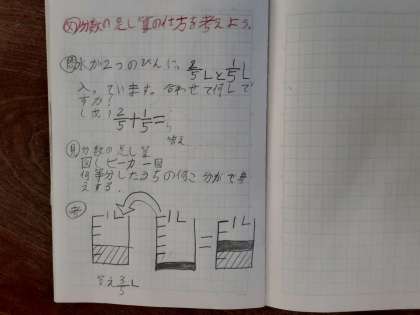 め 分数のたし算の仕方を考えよう。
問 水が2つのびんに、2/5Lと1/5L
入っています。合わせて何Lで
すか?
(し出) 2/5+1/5=
答え
見 分数のたし算
図しビーカー図
何等分したうちの何こ分かで考
えする。
考
1L 1L = 1L
答え3/5L